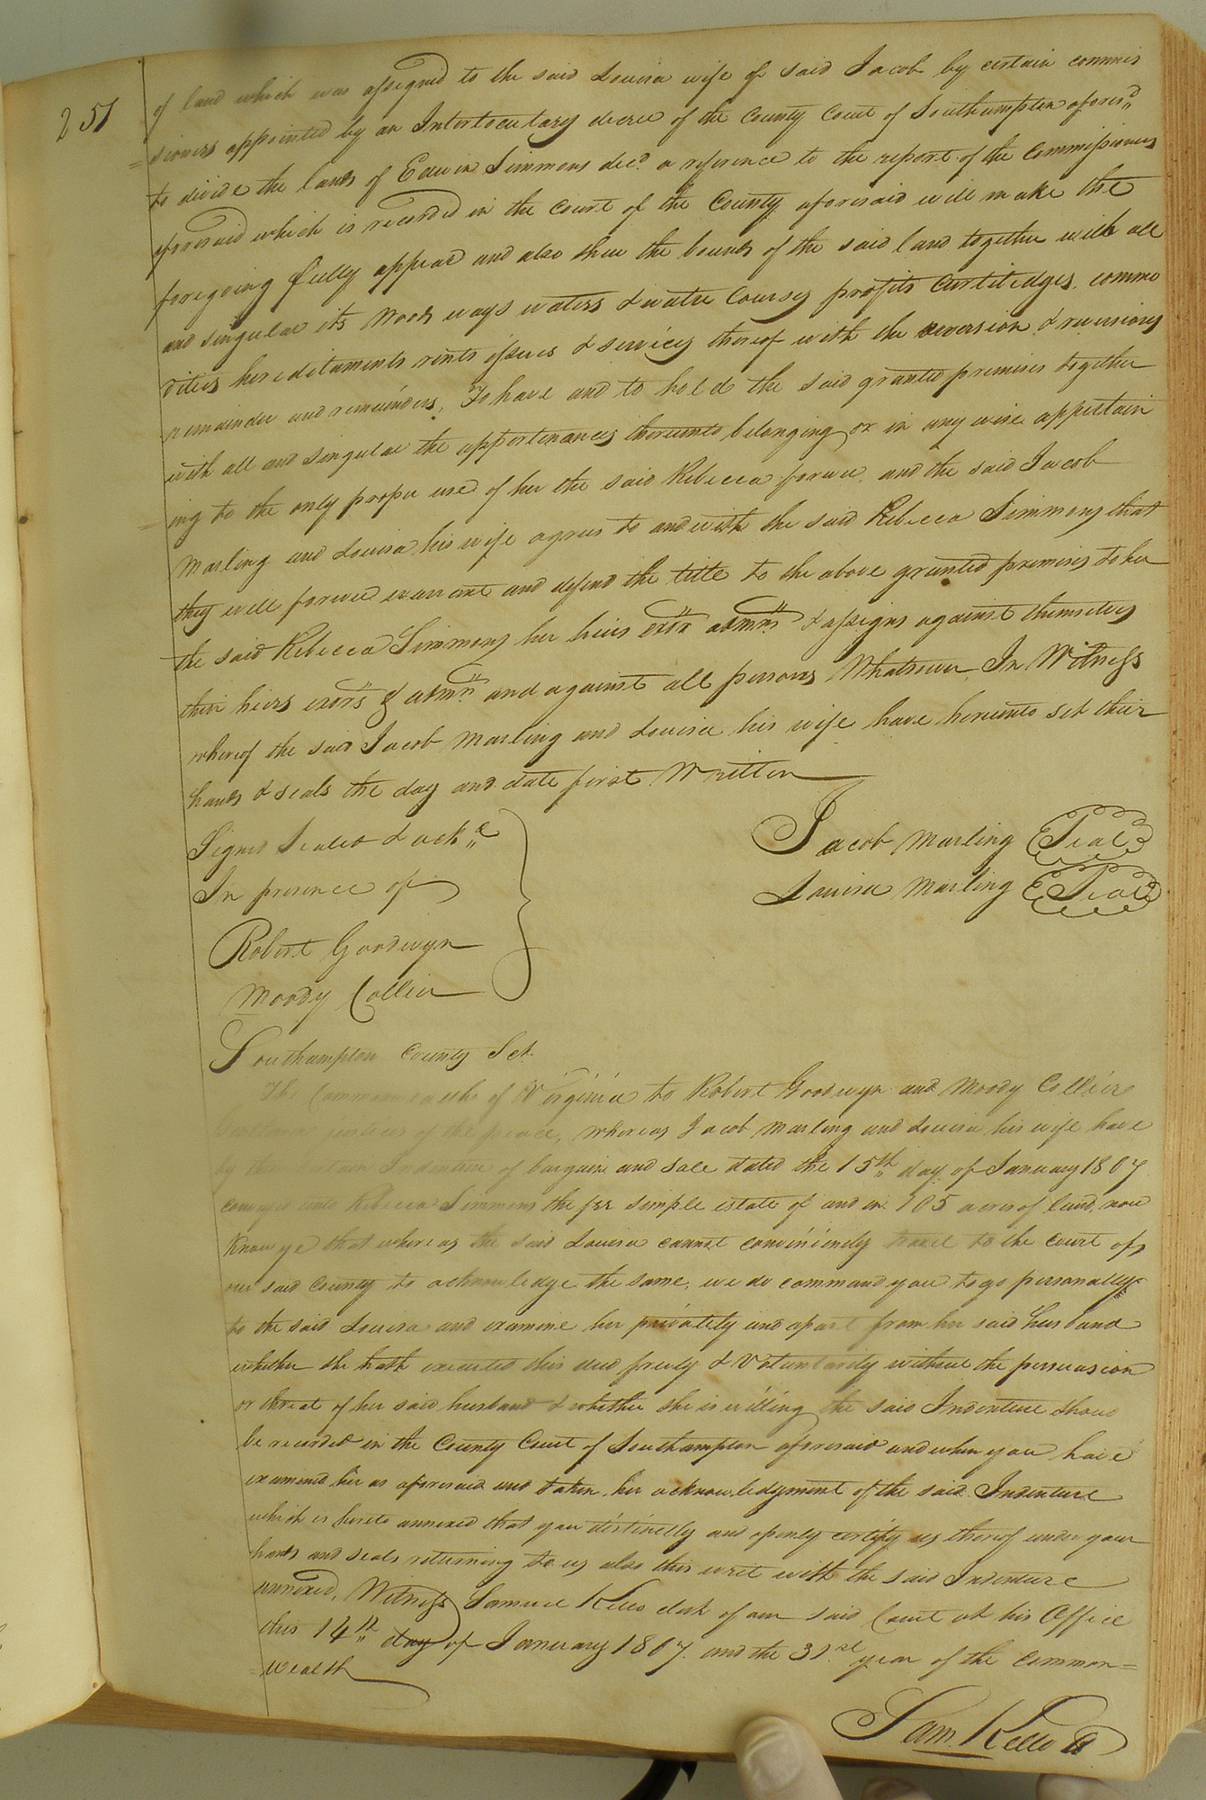 251
of land which was assigned to the said Louisa wife of said Jacob by certain commis
=sioners appointed by an Interlocutary decree of the County Court of Southampton aforesd
to divide the lands of Edwin Simmons decd a reference to the report of the Commissioners
aforesaid which is recorded in the Court of the County aforesaid will make the
foregoing fully appear and also shew the bounds of the said land together with all
and singular its Woods ways waters & water Courses profits commo
dities hereditaments rents issues & services thereof with the reversion & reversions
remainder and remainders, To have and to hold the said granted premises together
with all and singular the appertenances thereunto belonging or in any wise appertain
=ing to the only proper use of her the said Rebecca forever, and the said Jacob
Marling and Louisa his wife agrees to and with the said Rebecca Simmons that
they will forever warrant and defend the title to the above granted premises to her
the said Rebecca Simmons her heirs exors admrs & assigns against themselves
their heirs exors & admrs and against all persons Whatsoever In Witness
whereof the said Jacob Marling and Louisa his wife have hereunto set their
hands & seals the day and date first Written
Signed Sealed & ackd
In presence of
Robert Goodwyn
Moody Collier
Jacob Marling Seal
Louisa Marling Seal
Southampton County Sct.
The Commonwealth of Virginia to Robert Goodwyn and Moody Collier
Gentlemen justices of the peace, whereas Jacob Marling and Louisa his wife have
by their certain Indenture of bargain and sale dated the 15th day of January 1807
conveyed unto Rebecca Simmons the fee simple estate of and in 105 acres of land, now
Know ye that whereas the said Louisa cannot conveniently travel to the Court of
our said County to acknowledge the same, we do command you to go personally
to the said Louisa and examine her privately and apart from her said husband
whether she hath executed this deed freely & Voluntarily without the persuasion
or threat of her said husband & whether she is willing the said Indenture should
be recorded in the County Court of Southampton aforesaid and when you have
examined her as aforesaid and taken her acknowledgment of the said Indenture
which is hereto annexed that you distinctly and openly certify us thereof under your
hands and seals returning to us also this writ with the said Indenture
annexed, Witness Samuel Kello clerk of our said Court at his Office
this 14th day of January 1807. and the 31st year of the Common=
=wealth
Sam. Kello